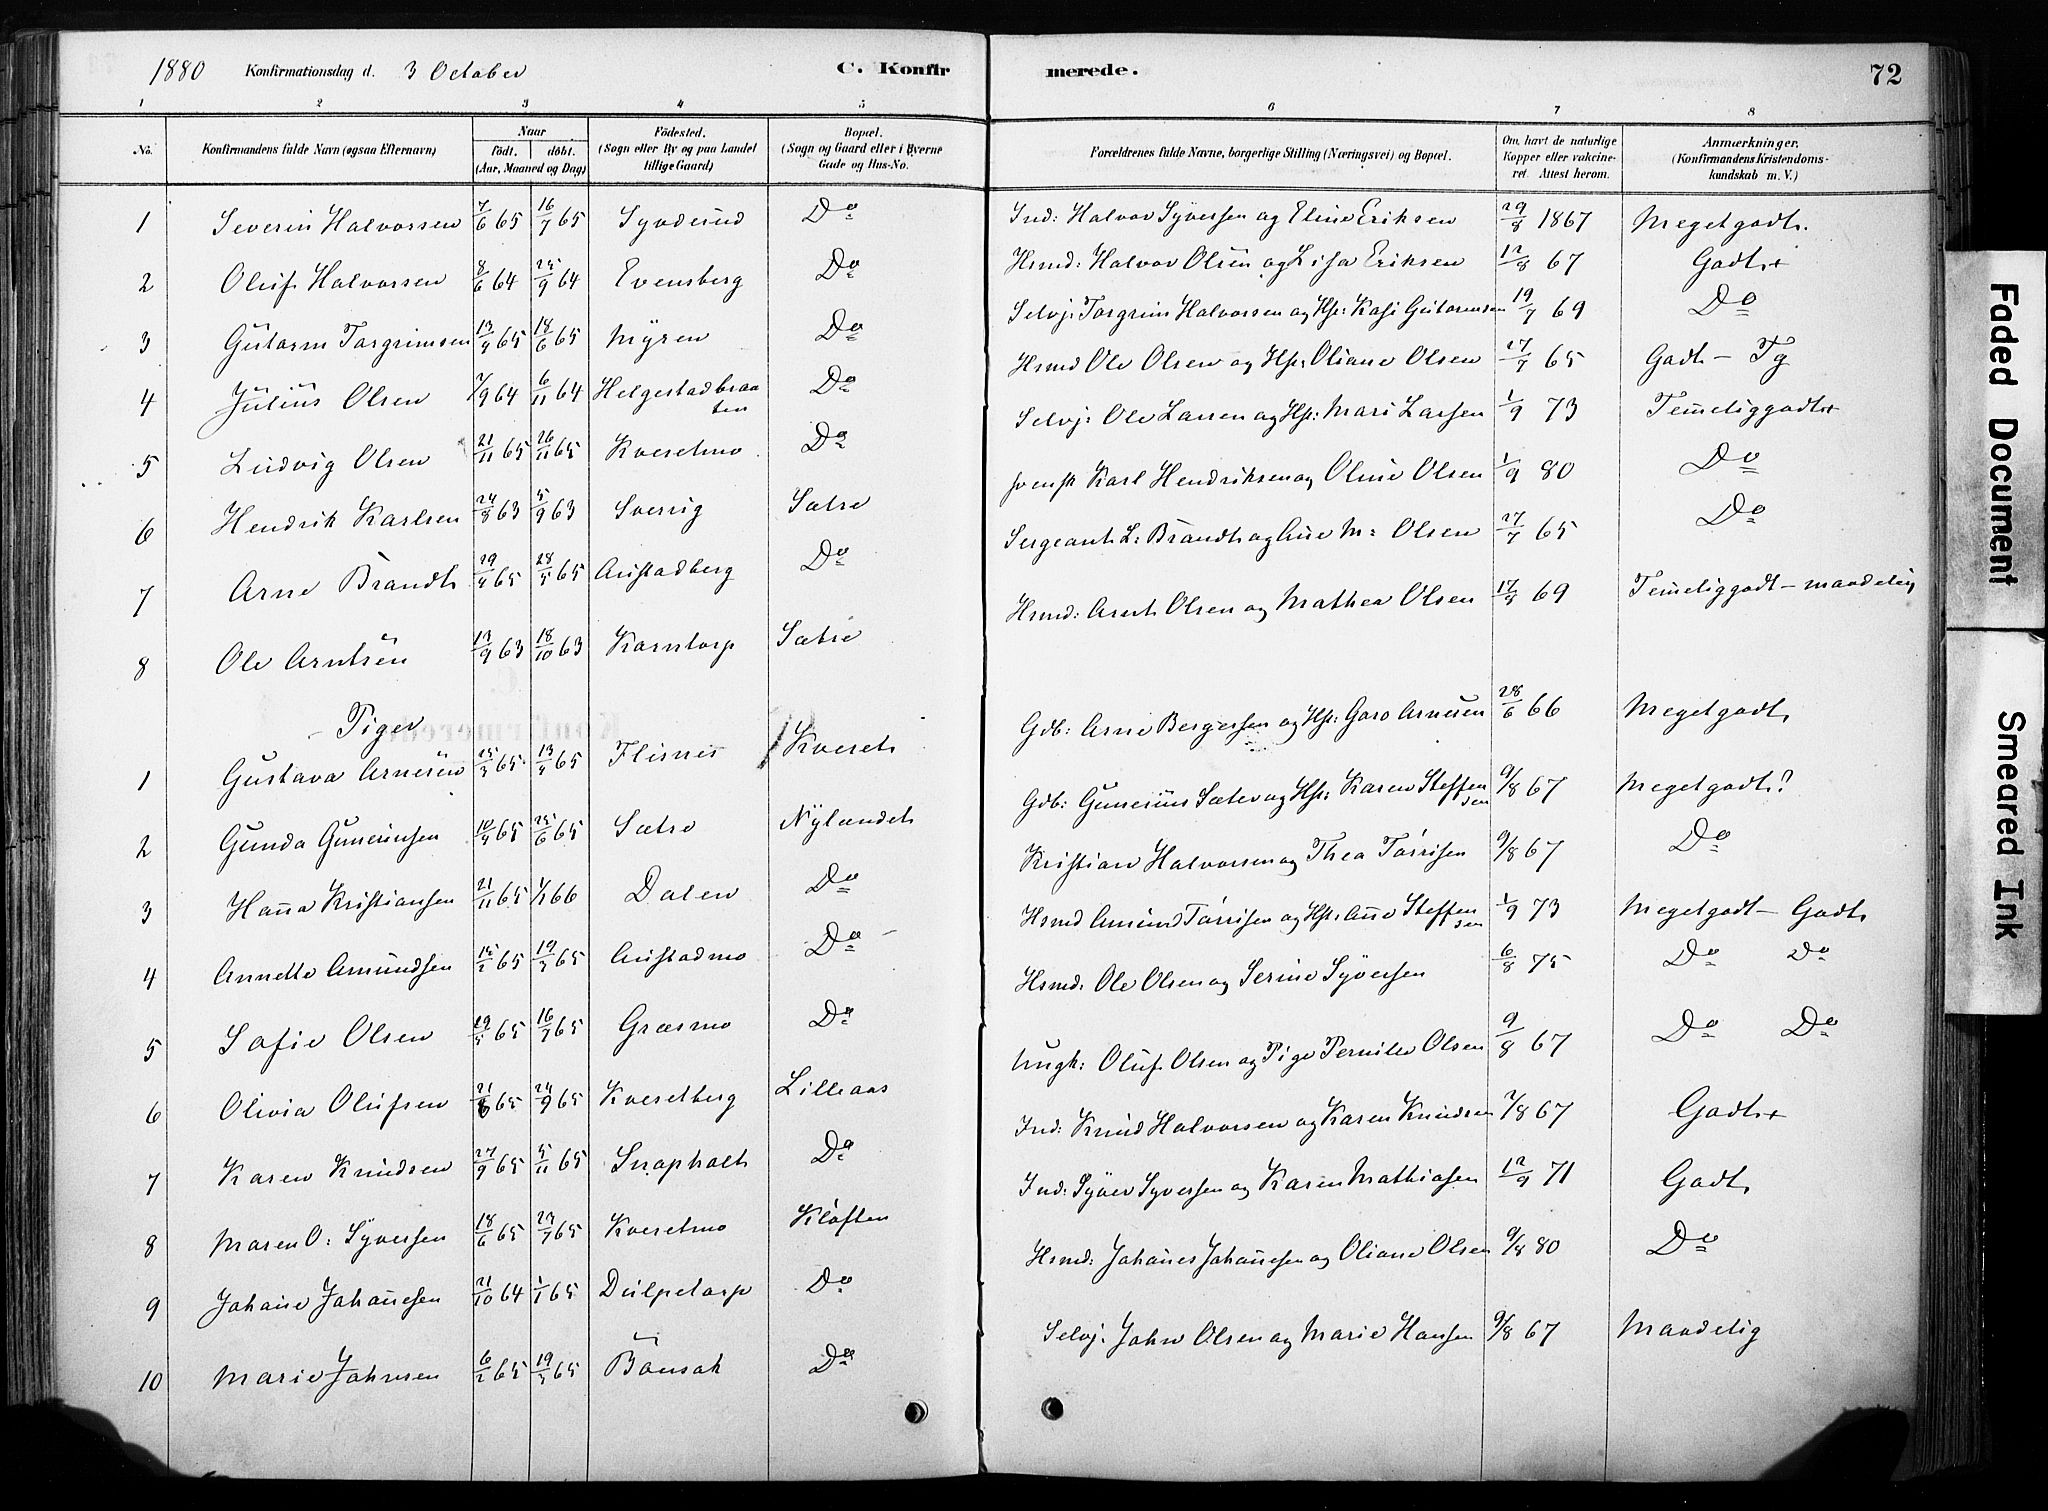 1880 Konfirmationsdag d. 3 October C. Konfir merede. 72
1 2 3 4 5 6 7 8
No. Konfirmandens fulde Navn (ogsaa Efternavn) Naar födt. döbt. (Aar, Maaned og Dag) Födested. (Sogn eller By og paa Landet tillige Gaard) Bopæl. (Sogn og Gaard eller i Byerne Gade og Hus-No. Forældrenes fulde Navne, borgerlige Stilling (Næringsvei) og Bopæl. Om havt de naturlige Kopper eller vakcineret. Attest herom. Anmærkninger. (Konfirmandens Kristendomskundskab m. V.)
1 Severin Halvorsen 7/6 65 16/7 65 Syndeund Do Ind: Halvor Syversen og Eline Eriksen 29/8 1867 Meget godt.
2 Oluf Halvorsen 8/6 64 25/9 64 Evensberg Do Hsmd: Halvor Olsen og Lisa Eriksen 12/8 67 Godt+
3 Gutorm Torgrimsen 13/4 65 18/6 65 Myren Do Selvj: Torgrim Halvorsen og Hst: Kasi Gutormsen 19/7 69 Do
4 Julius Olsen 7/9 64 6/11 64 Helgestadbraaten Do Hsmd Ole Olsen og Hst: Oliane Olsen 27/7 65 Godt - Tg
5 Ludvig Olsen 21/11 65 26/11 65 Kveselmo Do Selvj: Ole Larsen og Hst: Mari Larsen 1/9 73 Temeliggodt+
6 Hendrik Karlsen 24/8 63 5/9 63 Sverrig Sætre svensk Karl Hendriksen og Oline Olsen 1/9 80 Do
7 Arne Brandt 29/4 65 28/5 65 Austadberg Do Sergeant L: Brandt og Ane M: Olsen 27/7 65 Do
8 Ole Arntsen 13/9 63 18/10 63 Korntorp Sætre Hsmd: Arnt Olsen og Mathea Olsen 17/8 69 Temeliggodt - maadelig
- Piger
1 Gustava Arnesen 25/3 65 13/4 65 Flisnes Kveset Gdb: Arne Bergersen og Hst: Goro Arnesen 28/6 66 Meget godt
2 Gunda Guneriusen 10/4 65 25/6 65 Sætre Nylandet Gdb: Gunerius Sæter og Hst: Karen Steffensen 9/8 67 Meget godt?
3 Hanna Kristiansen 21/11 65 1/1 66 Dalen Do Kristian Halvorsen og Thea Torrisen 9/8 67 Do
4 Annette Amundsen 15/2 65 19/3 65 Austadmo Do Hsmd Amund Torrisen og Hst: Ane Steffensen 1/9 73 Meget godt - Godt
5 Sofie Olsen 29/5 65 16/7 65 Græsmo Do Hsmd: Ole Olsen og Serine Syversen 6/8 75 Do Do
6 Olivia Olufsen 21/8 65 24/9 65 Kveselberg Lilleaas Ungk: Oluf Olsen og Pige Pernille Olsen 9/8 67 Do Do
7 Karen Knudsen 27/9 65 5/11 65 Snapholt Do Ind: Knud Halvorsen og Karen Knudsen 7/8 67 Godt+
8 Maren O: Syversen 18/6 65 23/7 65 Kveselmo Kløften Ind: Syver Syversen og Karen Mathiasen 12/9 71 Godt
9 Johane Johanesen 21/10 64 1/1 65 Dulpetorp Do Hsmd: Johanes Johanesen og Oliane Olsen 9/8 80 Do
10 Marie Johnsen 6/2 65 19/3 65 Bönsak Do Selvj: John Olsen og Marie Hansen 9/8 67 Maadelig
Faded Document
Smeared Ink